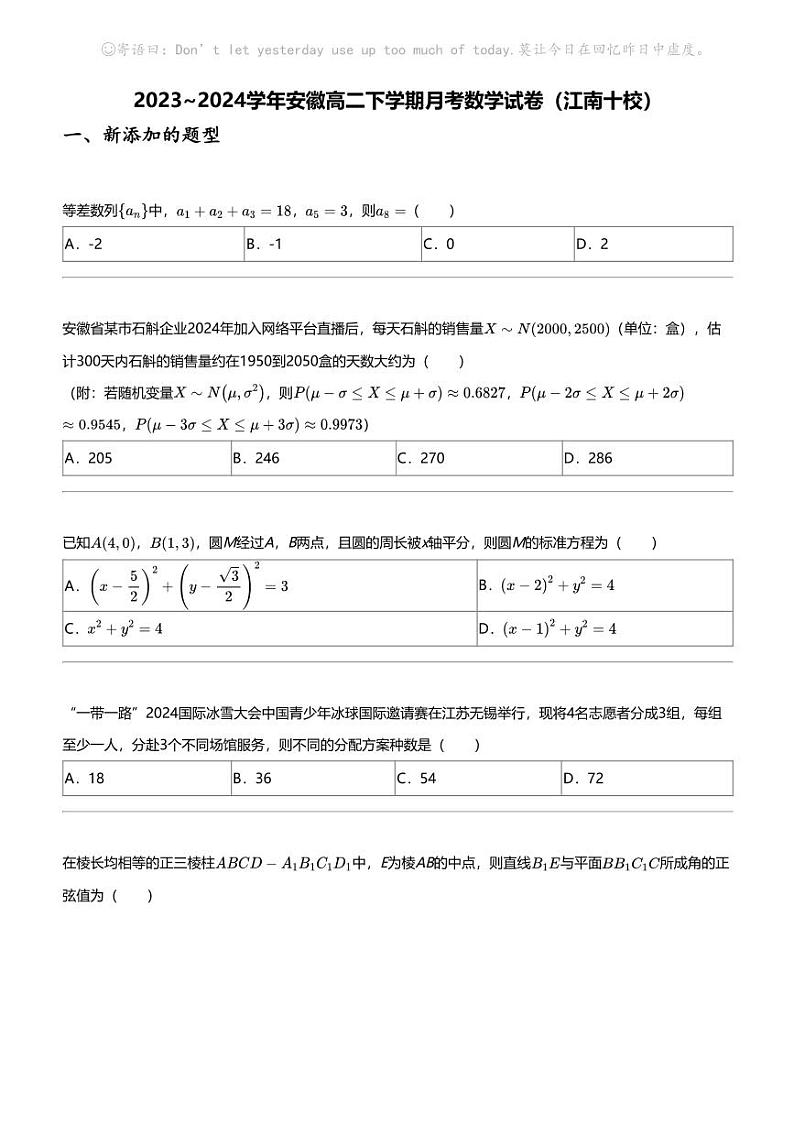 ☺寄语日：Don't let yesterday use up too much of today.莫让今日在回忆昨日中虚度。
2023~2024学年安徽高二下学期月考数学试卷（江南十校）
一、新添加的题型
等差数列{aₙ}中，a₁ + a₂ + a₃ = 18，a₅ = 3，则a₈ =（  ）
A．-2 B．-1 C．0 D．2
安徽省某市石斛企业2024年加入网络平台直播后，每天石斛的销售量X ~ N(2000, 2500)（单位：盒），估
计300天内石斛的销售量约在1950到2050盒的天数大约为（  ）
（附：若随机变量X ~ N(μ, σ²)，则P(μ − σ ≤ X ≤ μ + σ) ≈ 0.6827，P(μ − 2σ ≤ X ≤ μ + 2σ)
≈ 0.9545，P(μ − 3σ ≤ X ≤ μ + 3σ) ≈ 0.9973）
A．205 B．246 C．270 D．286
已知A(4, 0)，B(1, 3)，圆M经过A，B两点，且圆的周长被x轴平分，则圆M的标准方程为（  ）
A．(x − 5/2)² + (y − √3/2)² = 3 B．(x − 2)² + y² = 4
C．x² + y² = 4 D．(x − 1)² + y² = 4
“一带一路”2024国际冰雪大会中国青少年冰球国际邀请赛在江苏无锡举行，现将4名志愿者分成3组，每组
至少一人，分赴3个不同场馆服务，则不同的分配方案种数是（  ）
A．18 B．36 C．54 D．72
在棱长均相等的正三棱柱ABCD − A₁B₁C₁D₁中，E为棱AB的中点，则直线B₁E与平面BB₁C₁C所成角的正
弦值为（  ）